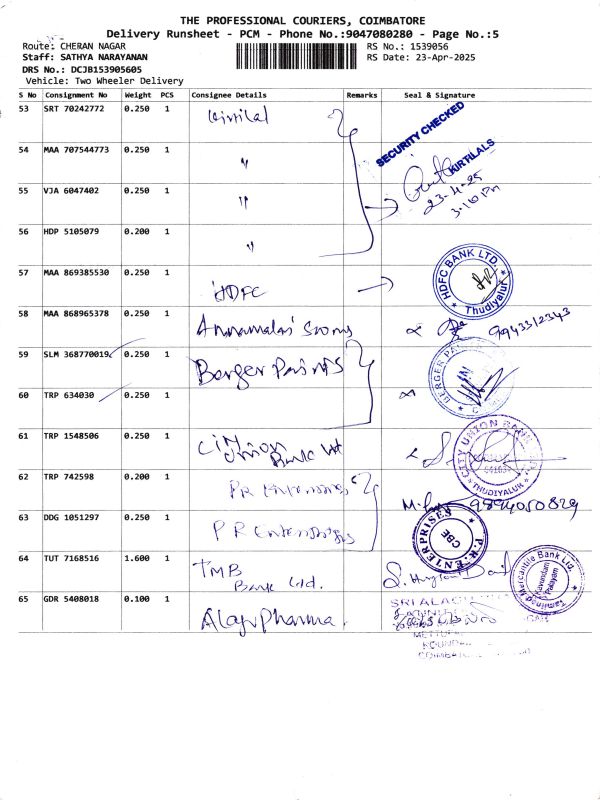 THE PROFESSIONAL COURIERS, COIMBATORE
Delivery Runsheet - PCM - Phone No.:9047080280 - Page No.:5
Route: CHERAN NAGAR
RS No.: 1539056
Staff: SATHYA NARAYANAN
RS Date: 23-Apr-2025
DRS No.: DCJB153905605
Vehicle: Two Wheeler Delivery
S No Consignment No Weight PCS Consignee Details Remarks Seal & Signature
53 SRT 70242772 0.250 1
SECURITY CHECKED
54 MAA 707544773 0.250 1 "
KIRTILALS
55 VJA 6047402 0.250 1 "
23-4-25
3.10 Pm
56 HDP 5105079 0.200 1 "
57 MAA 869385530 0.250 1 HDFC
HDFC BANK LTD. Thudiyalur
58 MAA 868965378 0.250 1 Annamalai 9943312343
59 SLM 368770019 0.250 1 Berger Paints
BERGER
60 TRP 634030 0.250 1
61 TRP 1548506 0.250 1 City Union Bank Ltd
CITY UNION BANK THUDIYALUR
62 TRP 742598 0.200 1 PR Enterprises
9894050829
63 DDG 1051297 0.250 1 PR Enterprises
P.R. ENTERPRISES CBE
64 TUT 7168516 1.600 1 TMB Bank Ltd.
Tamilnad Mercantile Bank Ltd. Kavundam Palayam
65 GDR 5408018 0.100 1 Alagu Pharma.
SRI ALAGU